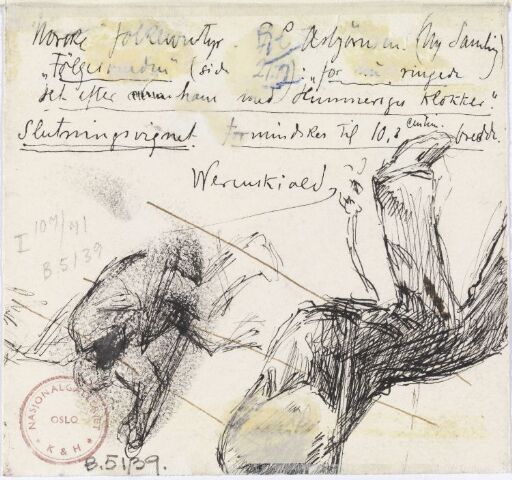 Norske folkeeventyr. Asbjörnsen. (Ny Samling)
"Følgesvenden" (side 212): "for nu ringede
det efter ham med Himmeriges klokker."
Slutningsvignet. formindskes til 10,2 centim. bredde.
Werenskiold
I 10M/M1
B.51/39
NASJONALGALLERIET
OSLO
K & H
B.51/39.